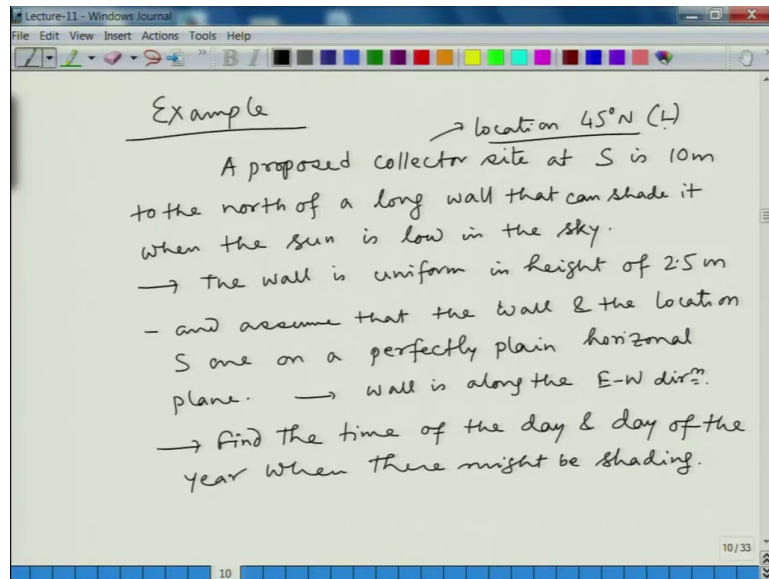 Lecture-11 - Windows Journal
File Edit View Insert Actions Tools Help
B I
Example
→ location 45°N (L)
A proposed collector site at S is 10m
to the north of a long wall that can shade it
when the sun is low in the sky.
→ The wall is uniform in height of 2.5 m
- and assume that the wall & the location
S are on a perfectly plain horizonal
plane. → wall is along the E-W dirⁿ.
→ Find the time of the day & day of the
year when there might be shading.
10/33
10